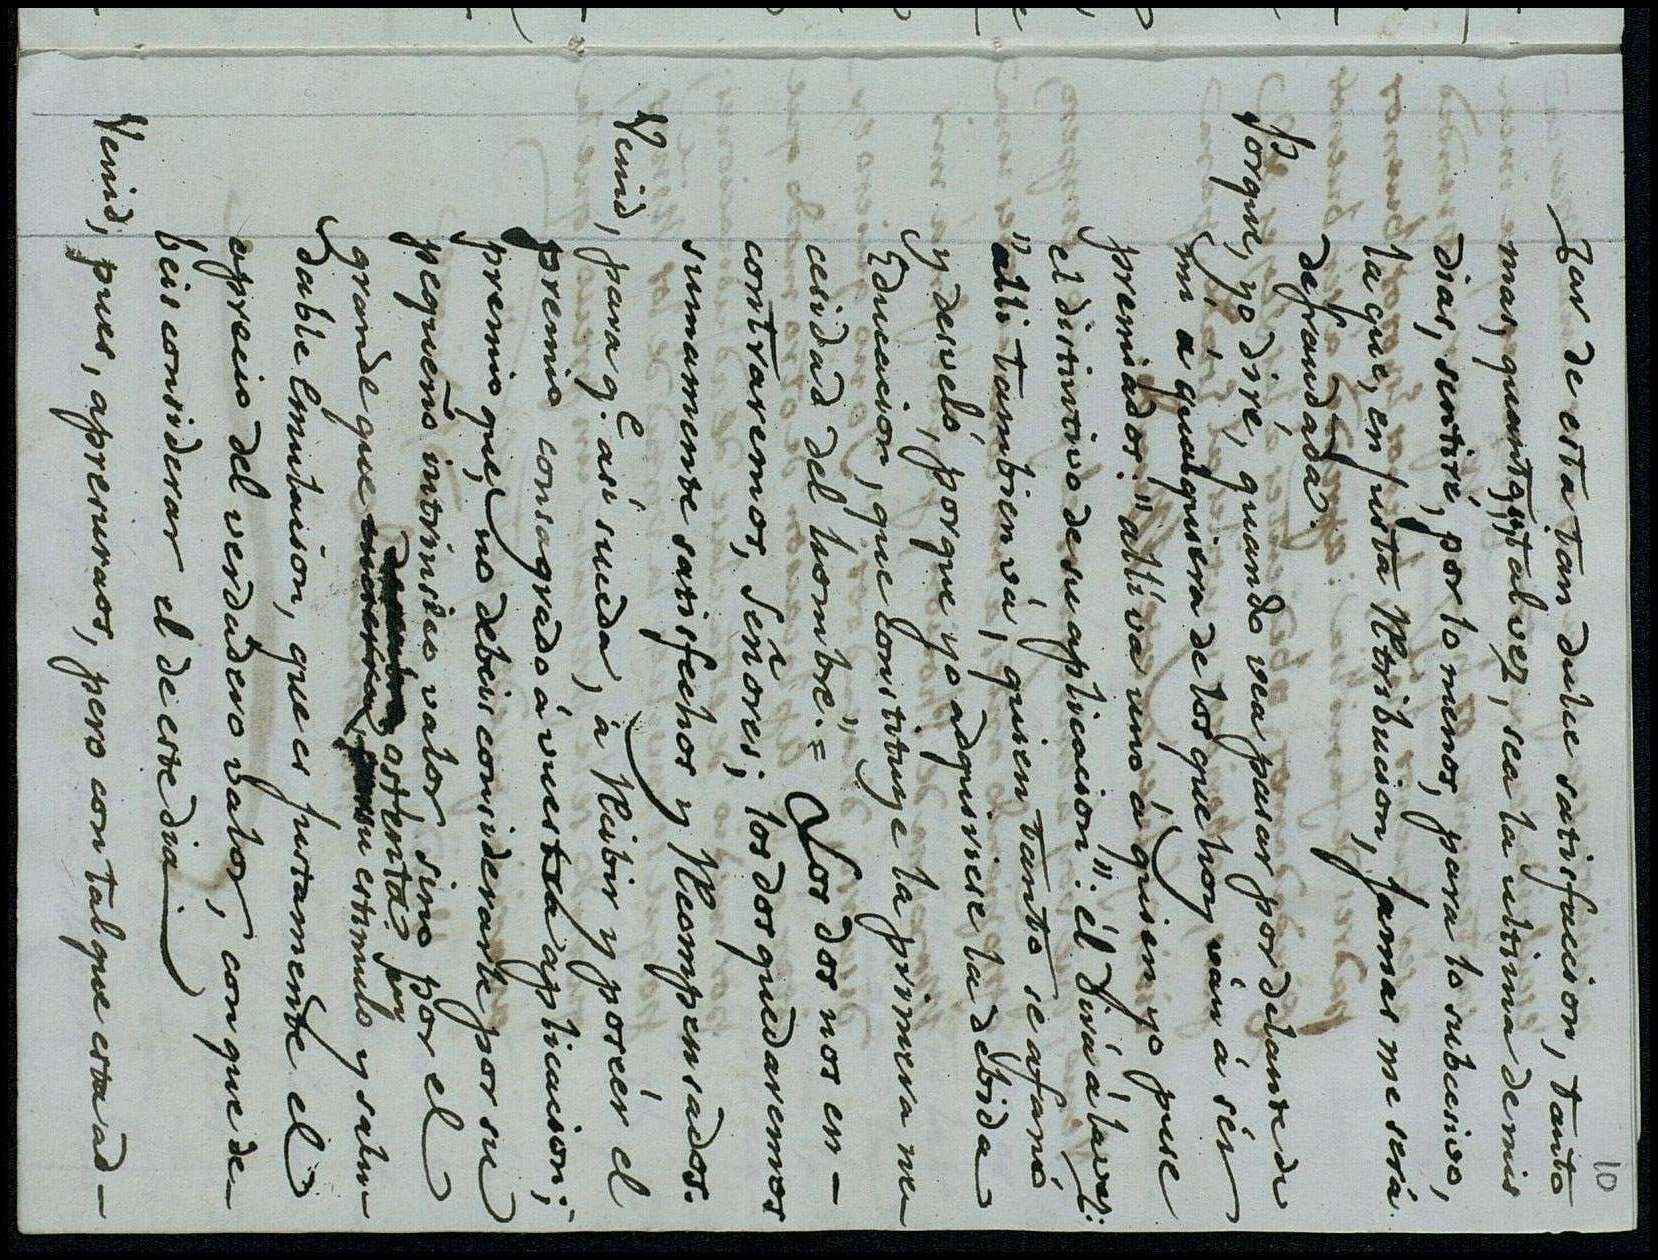 10
zar de esta tan dulce satisfaccion, tanto
mas, quanto, tal vez, sea la ultima de mis
dias, sentiré, por lo menos, para lo subcesivo,
la que, en justa Retribucion, jamas me será
defraudada.
Porque, yo diré, quando vea pasar por delante de
mi á qualquiera de los que hoy ván á sér
premiados: "allí va uno á quien yo puse
el distintivo de su aplicacion": él dirá á la vez:
"alli tambien vá, quien tanto se afanó
y desveló, porque yo adquiriese la debida
Educacion, que constituye la primera ne-
cesidad del hombre." = Los dos nos en-
contraremos, Señores; los dos quedaremos
sumamente satisfechos y Recompensados.
Venid, para q.e asi suceda, à Recibir y poséér el
premio consagrado á vuestra aplicacion;
premio que, no debeis considerarle por su
pequeño intrinseco valor, sino por el
grande que ostenta: por
su estimulo y salu-
dable Emulacion, que es justamente el
aprecio del verdadero valor, con que de-
beis considerar el de este dia.
Venid, pues, apresuraos, pero con tal que esta ad-